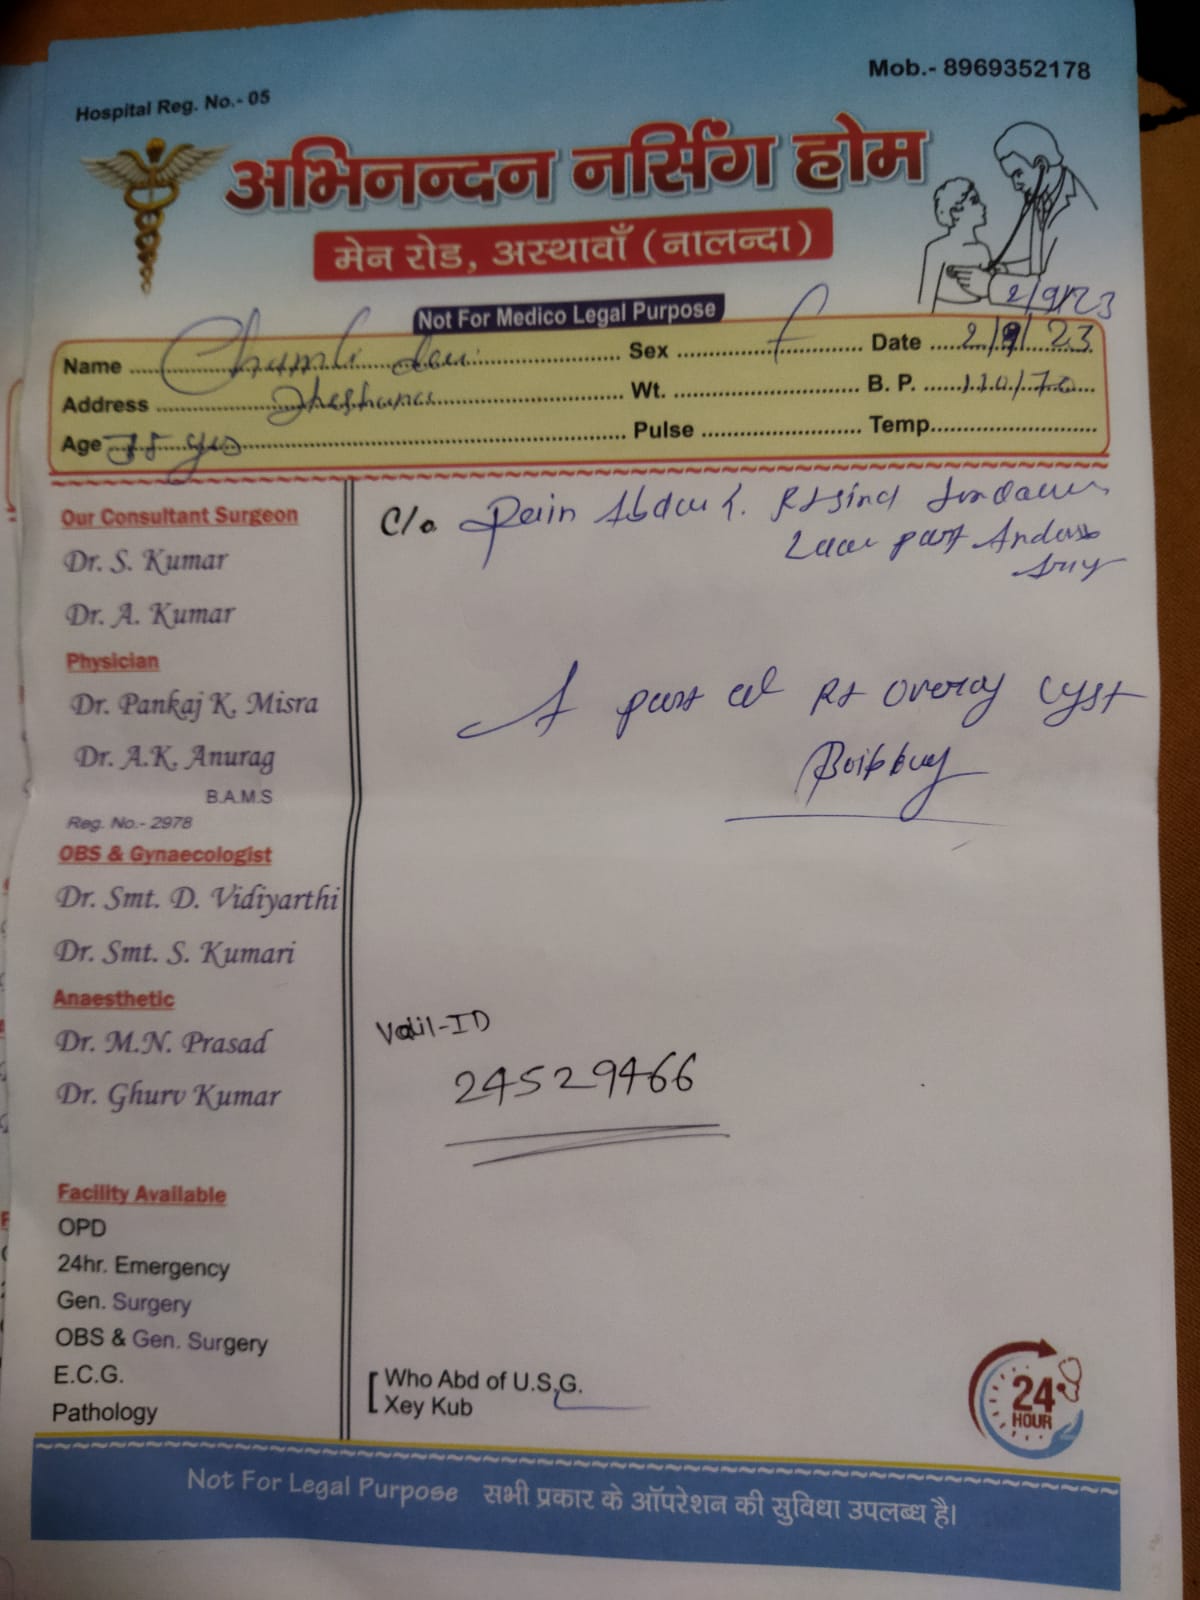 Mob.- 8969352178
Hospital Reg. No.- 05
अभिनन्दन नर्सिंग होम
मेन रोड, अस्थावाँ (नालन्दा)
Not For Medico Legal Purpose
2/9/23
Name Sex f Date 2/9/23
Address Wt. B. P. 110/70
Age Pulse Temp.
Our Consultant Surgeon
Dr. S. Kumar
Dr. A. Kumar
Physician
Dr. Pankaj K. Misra
Dr. A.K. Anurag
B.A.M.S
Reg. No.- 2978
OBS & Gynaecologist
Dr. Smt. D. Vidiyarthi
Dr. Smt. S. Kumari
Anaesthetic
Dr. M.N. Prasad
Dr. Ghurv Kumar
Facility Available
OPD
24hr. Emergency
Gen. Surgery
OBS & Gen. Surgery
E.C.G.
Pathology
C/o Pain
part
Rt cyst
24529466
Who Abd of U.S.G.
Xey Kub
24
HOUR
Not For Legal Purpose सभी प्रकार के ऑपरेशन की सुविधा उपलब्ध है।